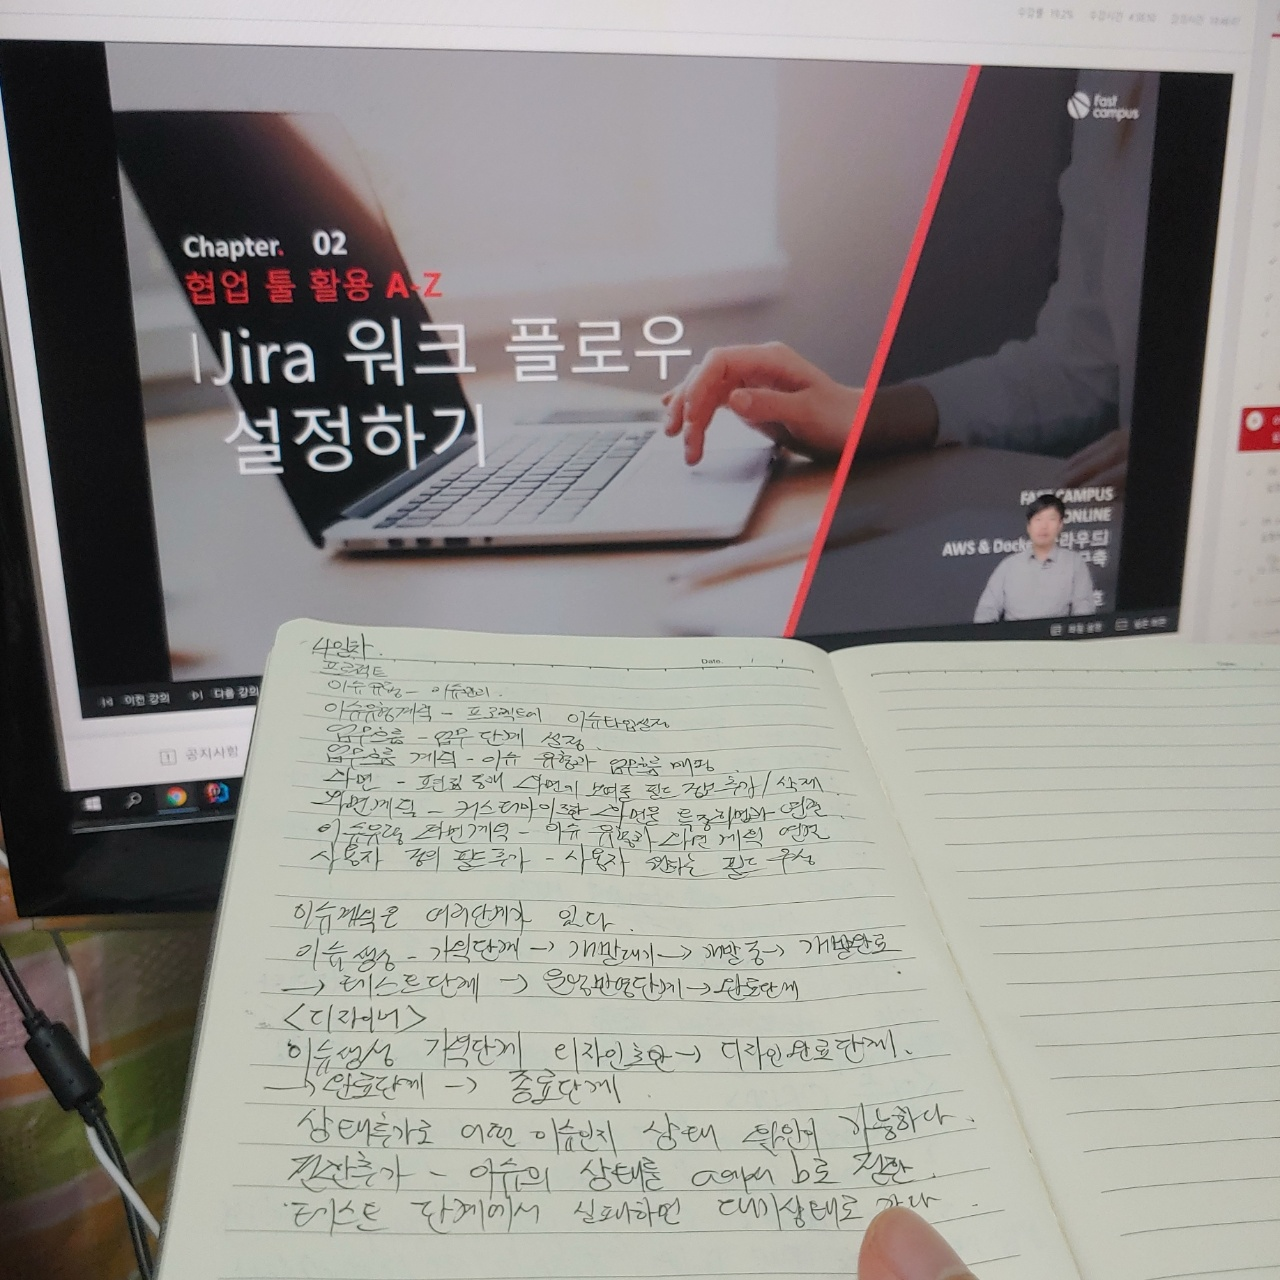 수강률 19.2% 수강시간
fast campus
Chapter. 02
협업 툴 활용 A-Z
Jira 워크 플로우
설정하기
FAST CAMPUS
ONLINE
AWS & Docker
이전 강의 다음 강의
1 공지사항
4일차.
Date.
프로젝트
이슈유형 - 이슈관리.
이슈유형계획 - 프로젝트에 이슈타입설정
업무흐름 - 업무 단계 설정.
업무흐름 계획 - 이슈 유형과 업무흐름 매핑.
화면 - 화면에 보여줄 필드 정보 추가/삭제
화면계획 - 커스터마이즈한 화면을 특정화면과 연결.
이슈유형 화면계획 - 이슈 유형과 화면 계획 연결
사용자 정의 필드추가 - 사용자 원하는 필드 구성
이슈계획은 여러단계가 있다.
이슈생성 - 기획단계 → 개발대기 → 개발중 → 개발완료
→ 테스트단계 → 운영반영단계 → 완료단계
<디자이너>
이슈생성 기획단계 디자인초안 → 디자인완료단계.
→ 완료단계 → 종료단계.
상태추가로 어떤 이슈인지 상태 확인이 가능하다.
전환추가 - 이슈의 상태를 a에서 b로 전환.
테스트 단계에서 실패하면 대기상태로 간다.